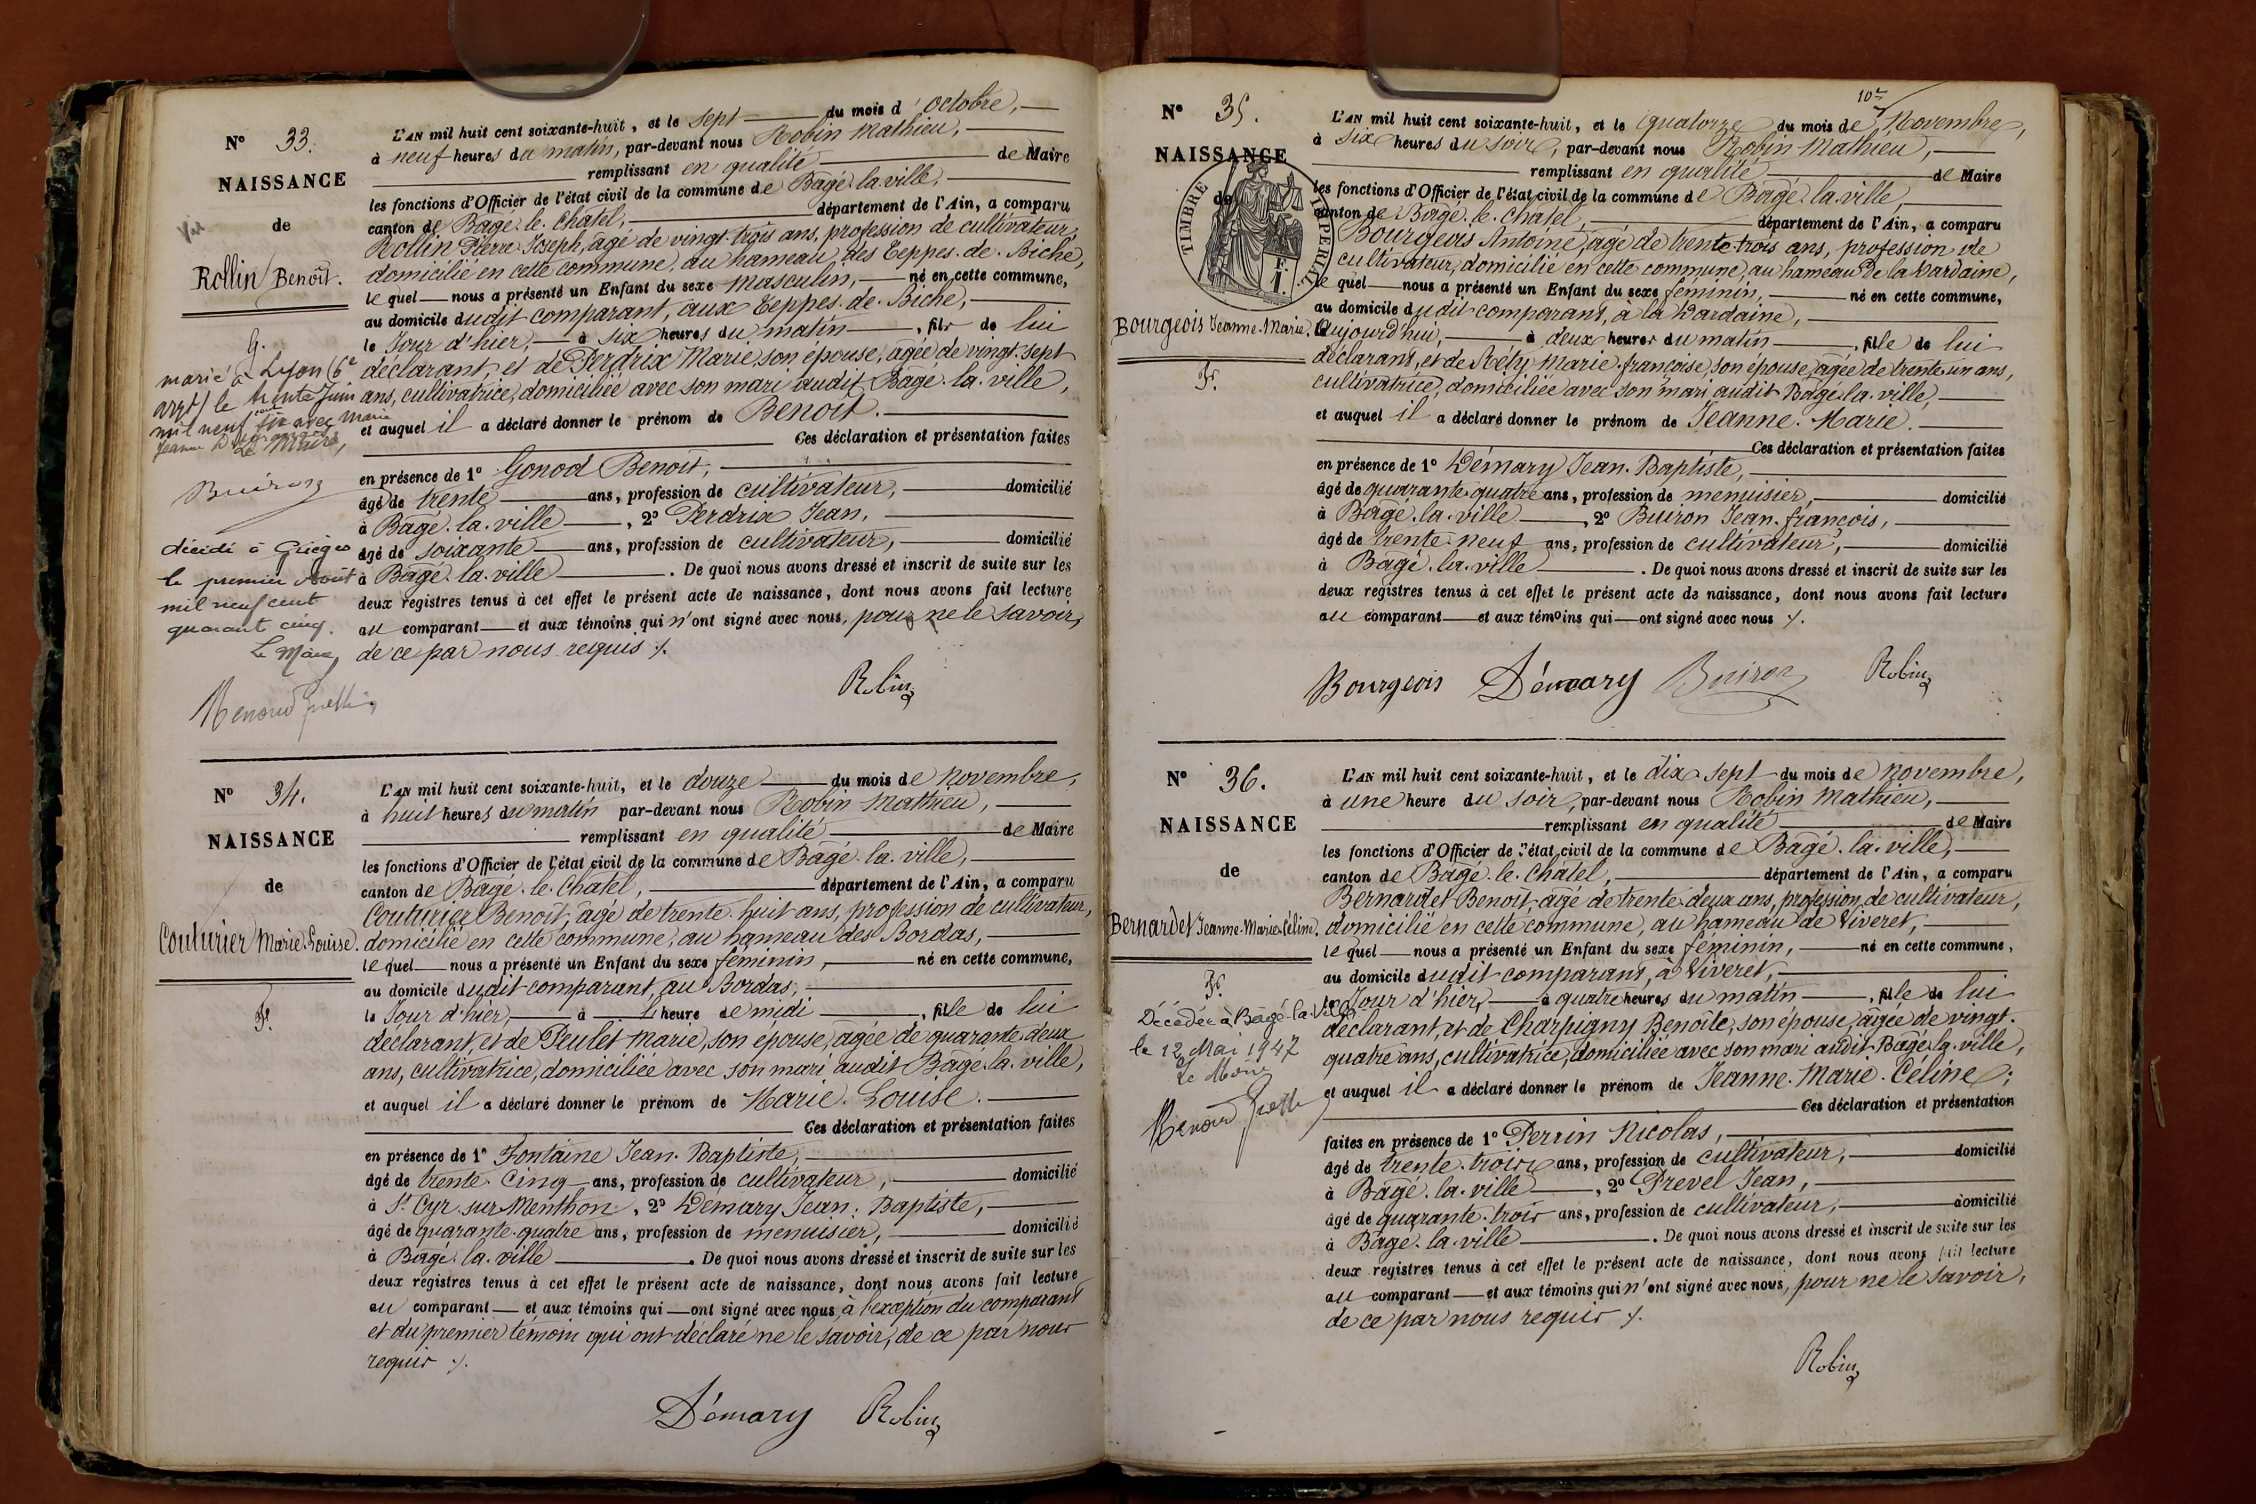 N° 33.
NAISSANCE
de
Rollin Benoît.
G.
marié à Lyon (6e
arrt) le trente Juin
mil neuf cent six avec Marie
Jeanne
Le Maire,
Buiron
décédé à Grièges
le premier Août
mil neuf cent
quarant cinq.
Le Maire,
L'AN mil huit cent soixante-huit, et le sept du mois d'octobre,
à neuf heures du matin, par-devant nous Robin Mathieu,
remplissant en qualité de Maire
les fonctions d'Officier de l'état civil de la commune de Bagé-la-ville,
canton de Bagé-le-Chatel, département de l'Ain, a comparu
Rollin Pierre Joseph, âgé de vingt-trois ans, profession de cultivateur,
domicilié en cette commune, au hameau des Teppes-de-Biche,
le quel nous a présenté un Enfant du sexe masculin, né en cette commune,
au domicile dudit comparant, aux Teppes-de-Biche,
le Jour d'hier, à six heures du matin, fils de lui
déclarant, et de Perdrix Marie, son épouse, âgée de vingt-sept
ans, cultivatrice, domiciliée avec son mari audit Bagé-la-ville,
et auquel il a déclaré donner le prénom de Benoît.
Ces déclaration et présentation faites
en présence de 1° Gonod Benoît,
âgé de trente ans, profession de cultivateur, domicilié
à Bagé-la-ville, 2° Perdrix Jean,
âgé de soixante ans, profession de cultivateur, domicilié
à Bagé-la-ville. De quoi nous avons dressé et inscrit de suite sur les
deux registres tenus à cet effet le présent acte de naissance, dont nous avons fait lecture
au comparant et aux témoins qui n'ont signé avec nous, pour ne le savoir,
de ce par nous requis ./.
Robin
N° 34.
NAISSANCE
de
Couturier Marie-Louise.
F.
L'AN mil huit cent soixante-huit, et le douze du mois de novembre,
à huit heures du matin par-devant nous Robin Mathieu,
remplissant en qualité de Maire
les fonctions d'Officier de l'état civil de la commune de Bagé-la-ville,
canton de Bagé-le-Chatel, département de l'Ain, a comparu
Couturier Benoît, âgé de trente-huit ans, profession de cultivateur,
domicilié en cette commune, au hameau des Bordas,
le quel nous a présenté un Enfant du sexe féminin, né en cette commune,
au domicile dudit comparant, au Bordas,
le Jour d'hier, à heure de midi, fille de lui
déclarant, et de Peulet Marie, son épouse, âgée de quarante-deux
ans, cultivatrice, domiciliée avec son mari audit Bagé-la-ville,
et auquel il a déclaré donner le prénom de Marie-Louise.
Ces déclaration et présentation faites
en présence de 1° Fontaine Jean-Baptiste,
âgé de trente-cinq ans, profession de cultivateur, domicilié
à St Cyr-sur-Menthon, 2° Démary Jean-Baptiste,
âgé de quarante-quatre ans, profession de menuisier, domicilié
à Bagé-la-ville. De quoi nous avons dressé et inscrit de suite sur les
deux registres tenus à cet effet le présent acte de naissance, dont nous avons fait lecture
au comparant et aux témoins qui ont signé avec nous, à l'exception du comparant
et du premier témoin qui ont déclaré ne le savoir, de ce par nous
requis ./.
Démary Robin
10e
N° 35.
NAISSANCE
de
TIMBRE IMPERIAL
Bourgeois Jeanne-Marie.
F.
L'AN mil huit cent soixante-huit, et le quatorze du mois de Novembre,
à six heures du soir, par-devant nous Robin Mathieu,
remplissant en qualité de Maire
les fonctions d'Officier de l'état civil de la commune de Bagé-la-ville,
canton de Bagé-le-chatel, département de l'Ain, a comparu
Bourgeois Antoine, âgé de trente-trois ans, profession de
cultivateur, domicilié en cette commune, au hameau de la Dardaine,
le quel nous a présenté un Enfant du sexe féminin, né en cette commune,
au domicile dudit comparant, à la Dardaine,
Aujourd'hui, à deux heures du matin, fille de lui
déclarant, et de Réty Marie-françoise, son épouse, âgée de trente-un ans,
cultivatrice, domiciliée avec son mari audit Bagé-la-ville,
et auquel il a déclaré donner le prénom de Jeanne-Marie.
Ces déclaration et présentation faites
en présence de 1° Démary Jean-Baptiste,
âgé de quarante-quatre ans, profession de menuisier, domicilié
à Bagé-la-ville, 2° Buiron Jean-françois,
âgé de trente-neuf ans, profession de cultivateur, domicilié
à Bagé-la-ville. De quoi nous avons dressé et inscrit de suite sur les
deux registres tenus à cet effet le présent acte de naissance, dont nous avons fait lecture
au comparant et aux témoins qui ont signé avec nous ./.
Bourgeois Démary Buiron Robin
N° 36.
NAISSANCE
de
Bernardet Jeanne-Marie-Céline.
F.
Décédée à Bagé-la-Ville
le 12 Mai 1947
Le Maire
L'AN mil huit cent soixante-huit, et le dix-sept du mois de novembre,
à une heure du soir, par-devant nous Robin Mathieu,
remplissant en qualité de Maire
les fonctions d'Officier de l'état civil de la commune de Bagé-la-ville,
canton de Bagé-le-Châtel, département de l'Ain, a comparu
Bernardet Benoît, âgé de trente-deux ans, profession de cultivateur,
domicilié en cette commune, au hameau de Viveret,
le quel nous a présenté un Enfant du sexe féminin, né en cette commune,
au domicile dudit comparant, à Viveret,
le Jour d'hier, à quatre heures du matin, fille de lui
déclarant, et de Charpigny Benoîte, son épouse, âgée de vingt-
quatre ans, cultivatrice, domiciliée avec son mari audit Bagé-la-ville,
et auquel il a déclaré donner le prénom de Jeanne-Marie-Céline;
Ces déclaration et présentation
faites en présence de 1° Perrin Nicolas,
âgé de trente-trois ans, profession de cultivateur, domicilié
à Bagé-la-ville, 2° Prevel Jean,
âgé de quarante-trois ans, profession de cultivateur, domicilié
à Bagé-la-ville. De quoi nous avons dressé et inscrit de suite sur les
deux registres tenus à cet effet le présent acte de naissance, dont nous avons fait lecture
au comparant et aux témoins qui n'ont signé avec nous, pour ne le savoir,
de ce par nous requis ./.
Robin